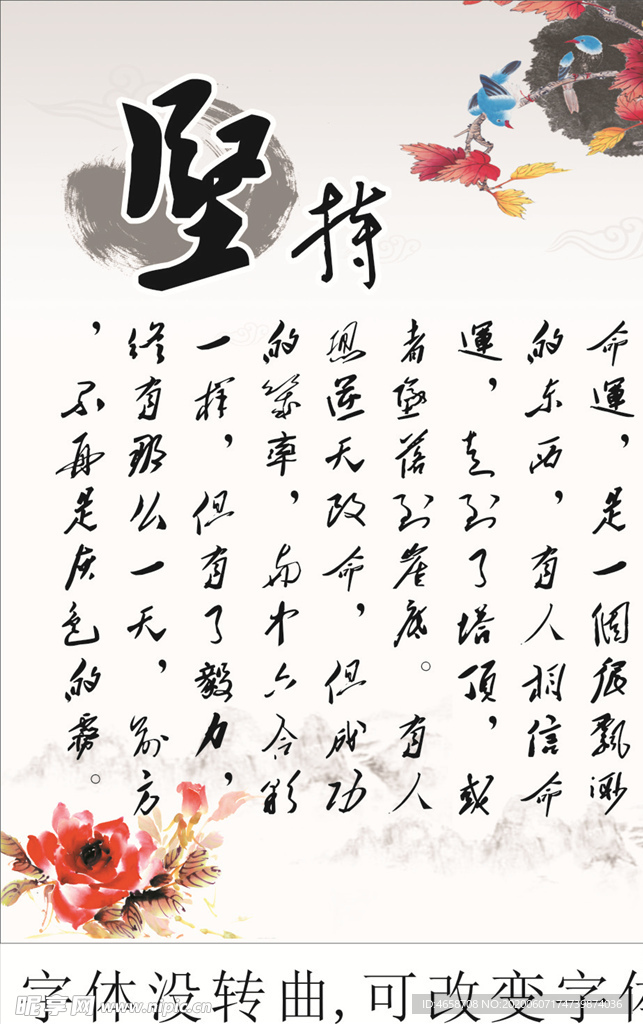 坚持
命運，是一個很飄渺
的东西，有人相信命
運，走到了塔頂，或
者墜落到崖底。有人
想逆天改命，但成功
的幾率，与中六合彩
一样，但有了毅力，
终有那么一天，前方
，不再是灰色的雾。
字体没转曲,可改变字体
昵享网 www.nipic.cn
ID:4658708 NO:20200607174739874036